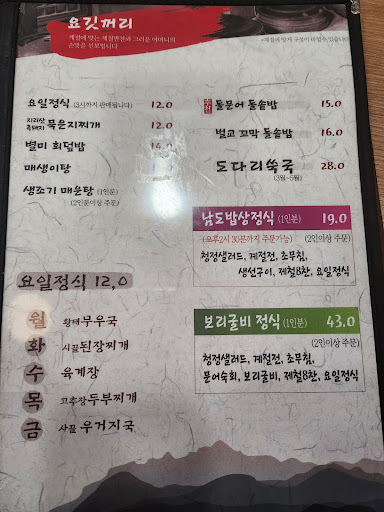 요깃꺼리
계절에 맞는 제철반찬과 그리운 어머니의
손맛을 선보입니다
요일정식 (3시까지 판매됩니다) 12.0
지리산
흑돼지 묵은지찌개 12.0
별미 회덮밥 14.0
매생이탕
생조기 매운탕 (1인분)
(2인분이상 주문)
추천 돌문어 돌솥밥 15.0
벌교 꼬막 돌솥밥 16.0
도다리쑥국 28.0
(3월~5월)
남도밥상정식 (1인분) 19.0
(오후2시 30분까지 주문가능) (2인이상 주문)
청정샐러드, 계절전, 초무침,
생선구이, 제철8찬, 요일정식
요일정식 12,0
월 황태무우국
화 시골된장찌개
수 육계장
목 고추장두부찌개
금 사골 우거지국
보리굴비 정식 (1인분) 43.0
(2인이상 주문)
청정샐러드, 계절전, 초무침,
문어숙회, 보리굴비, 제철8찬, 요일정식